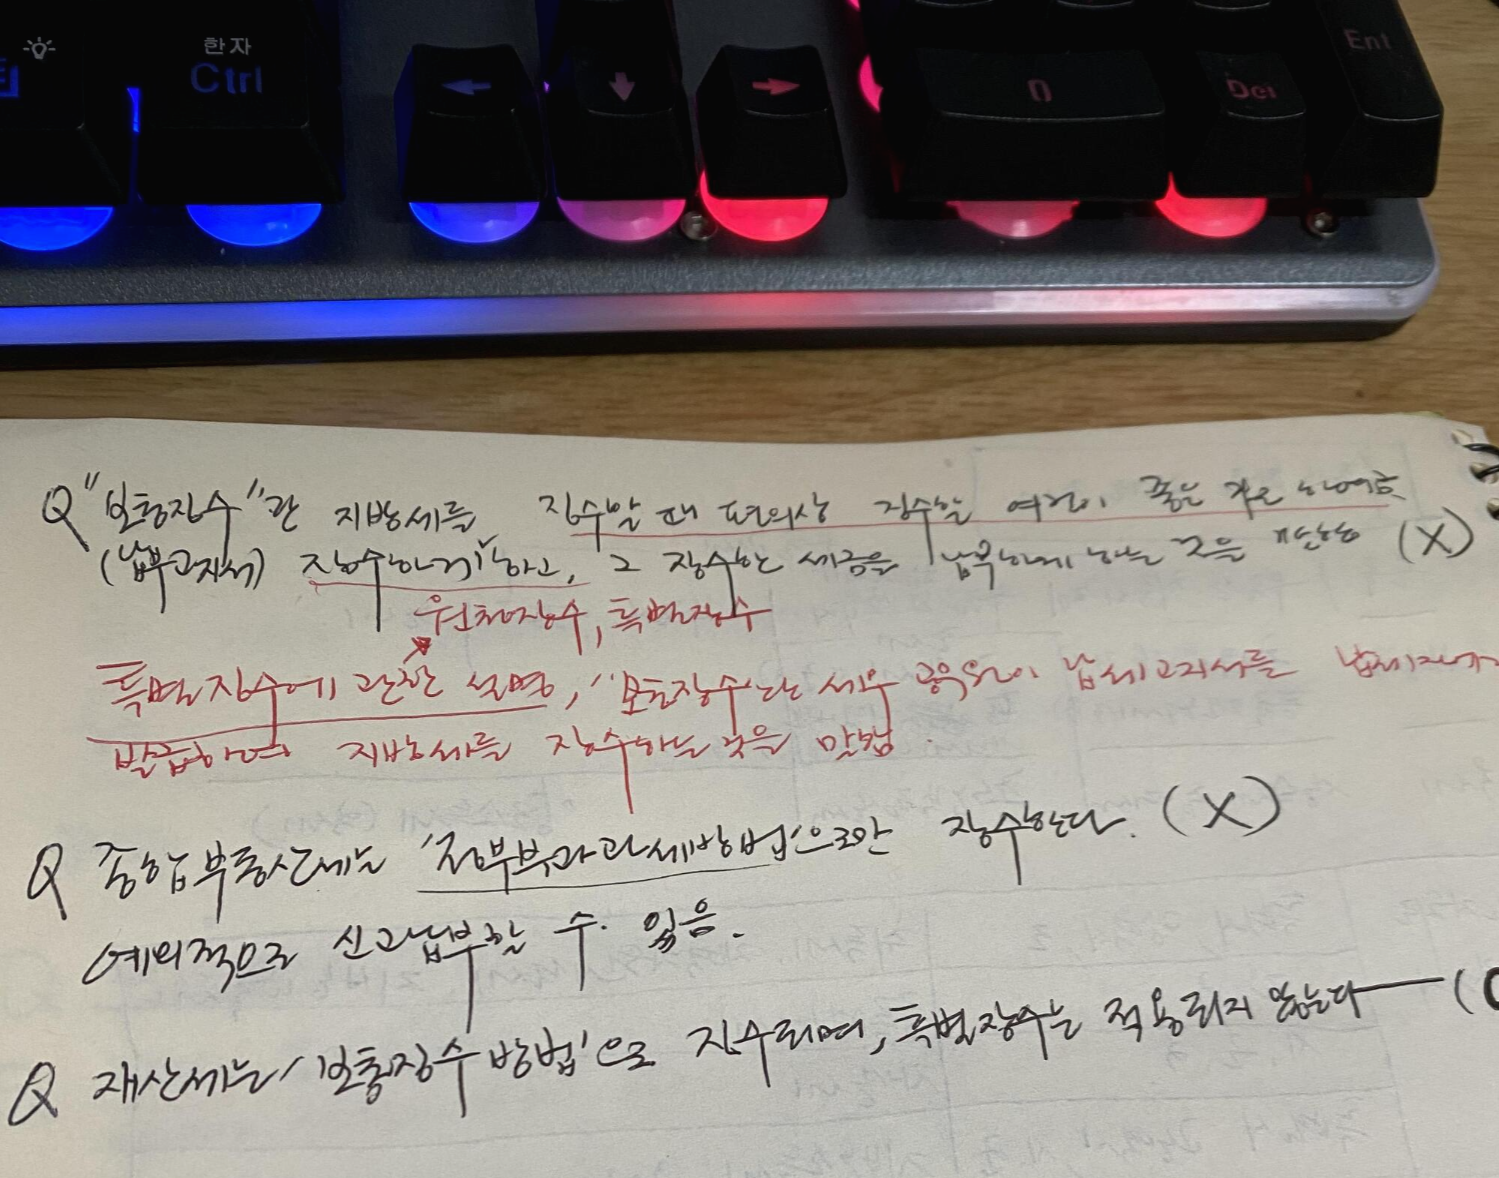 한자
Ctrl
Del
Ent
Q "보통징수"란 지방세를 징수할 때 편의상 징수할 여건이 좋은 자로 하여금
(납부고지서) 징수하게 하고, 그 징수한 세금을 납부하게 하는 것을 (X)
원천징수, 특별징수
특별징수에 관한 설명, "보통징수"란 세무 공무원이 납세고지서를 납세자에게
발급하여 지방세를 징수하는 것을 말함.
Q 종합부동산세는 '정부부과과세방법'으로만 징수한다. (X)
예외적으로 신고납부할 수 있음.
Q 재산세는 '보통징수 방법'으로 징수되며, 특별징수는 적용되지 않는다 (